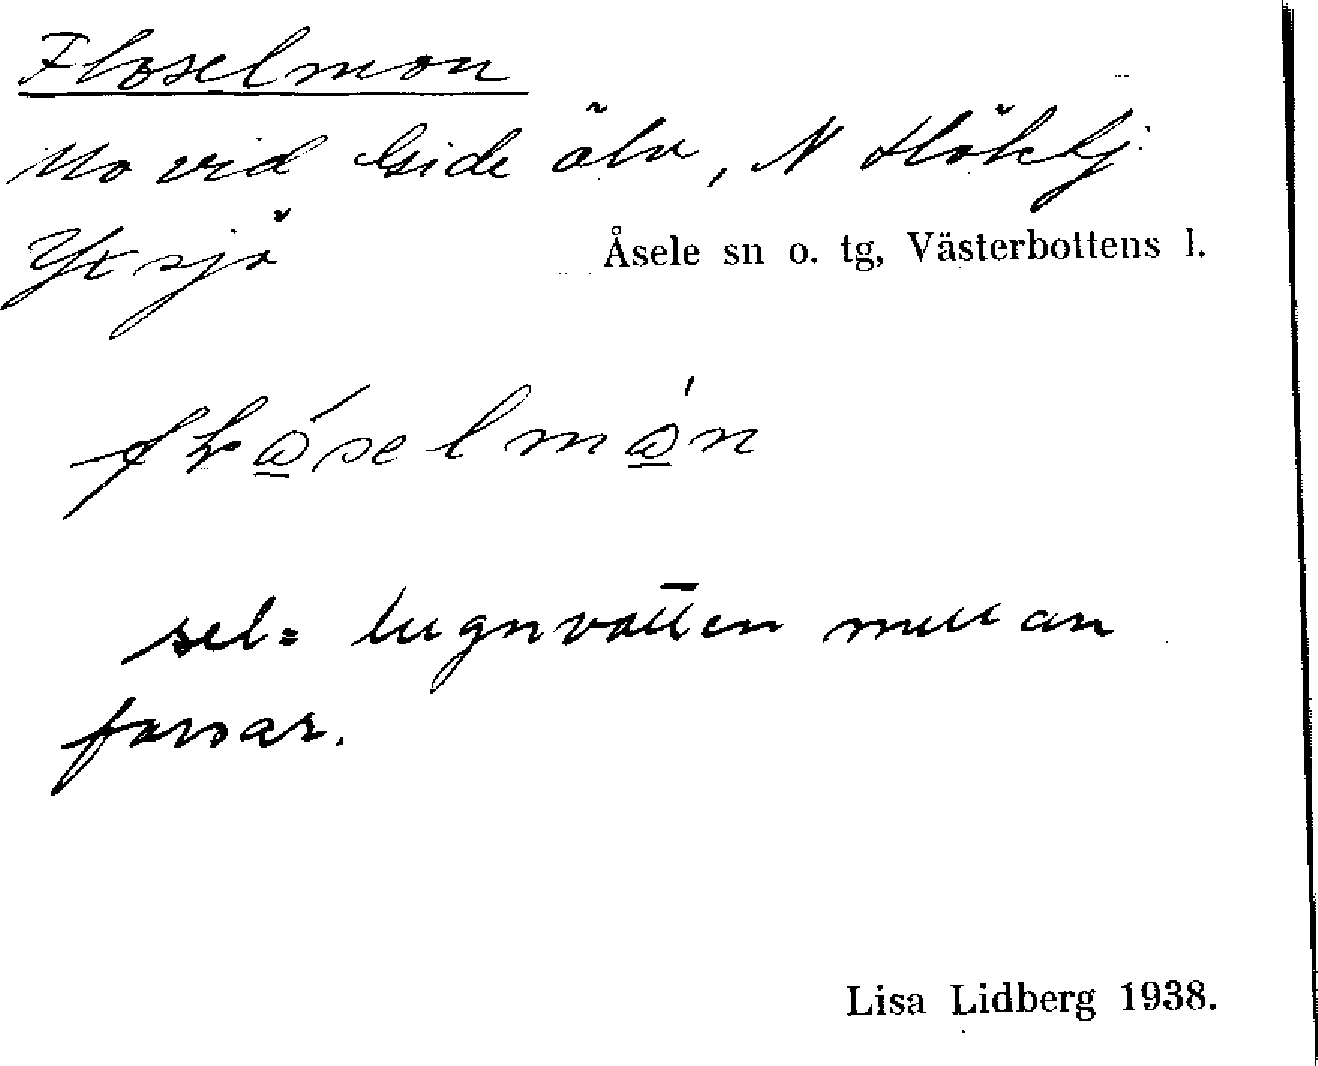 Floselmon
Mo vid Gide älv, N Hökbj.
Yttsjö
Åsele sn o. tg, Västerbottens l.
sel = lugnvatten mellan
forsar.
Lisa Lidberg 1938.